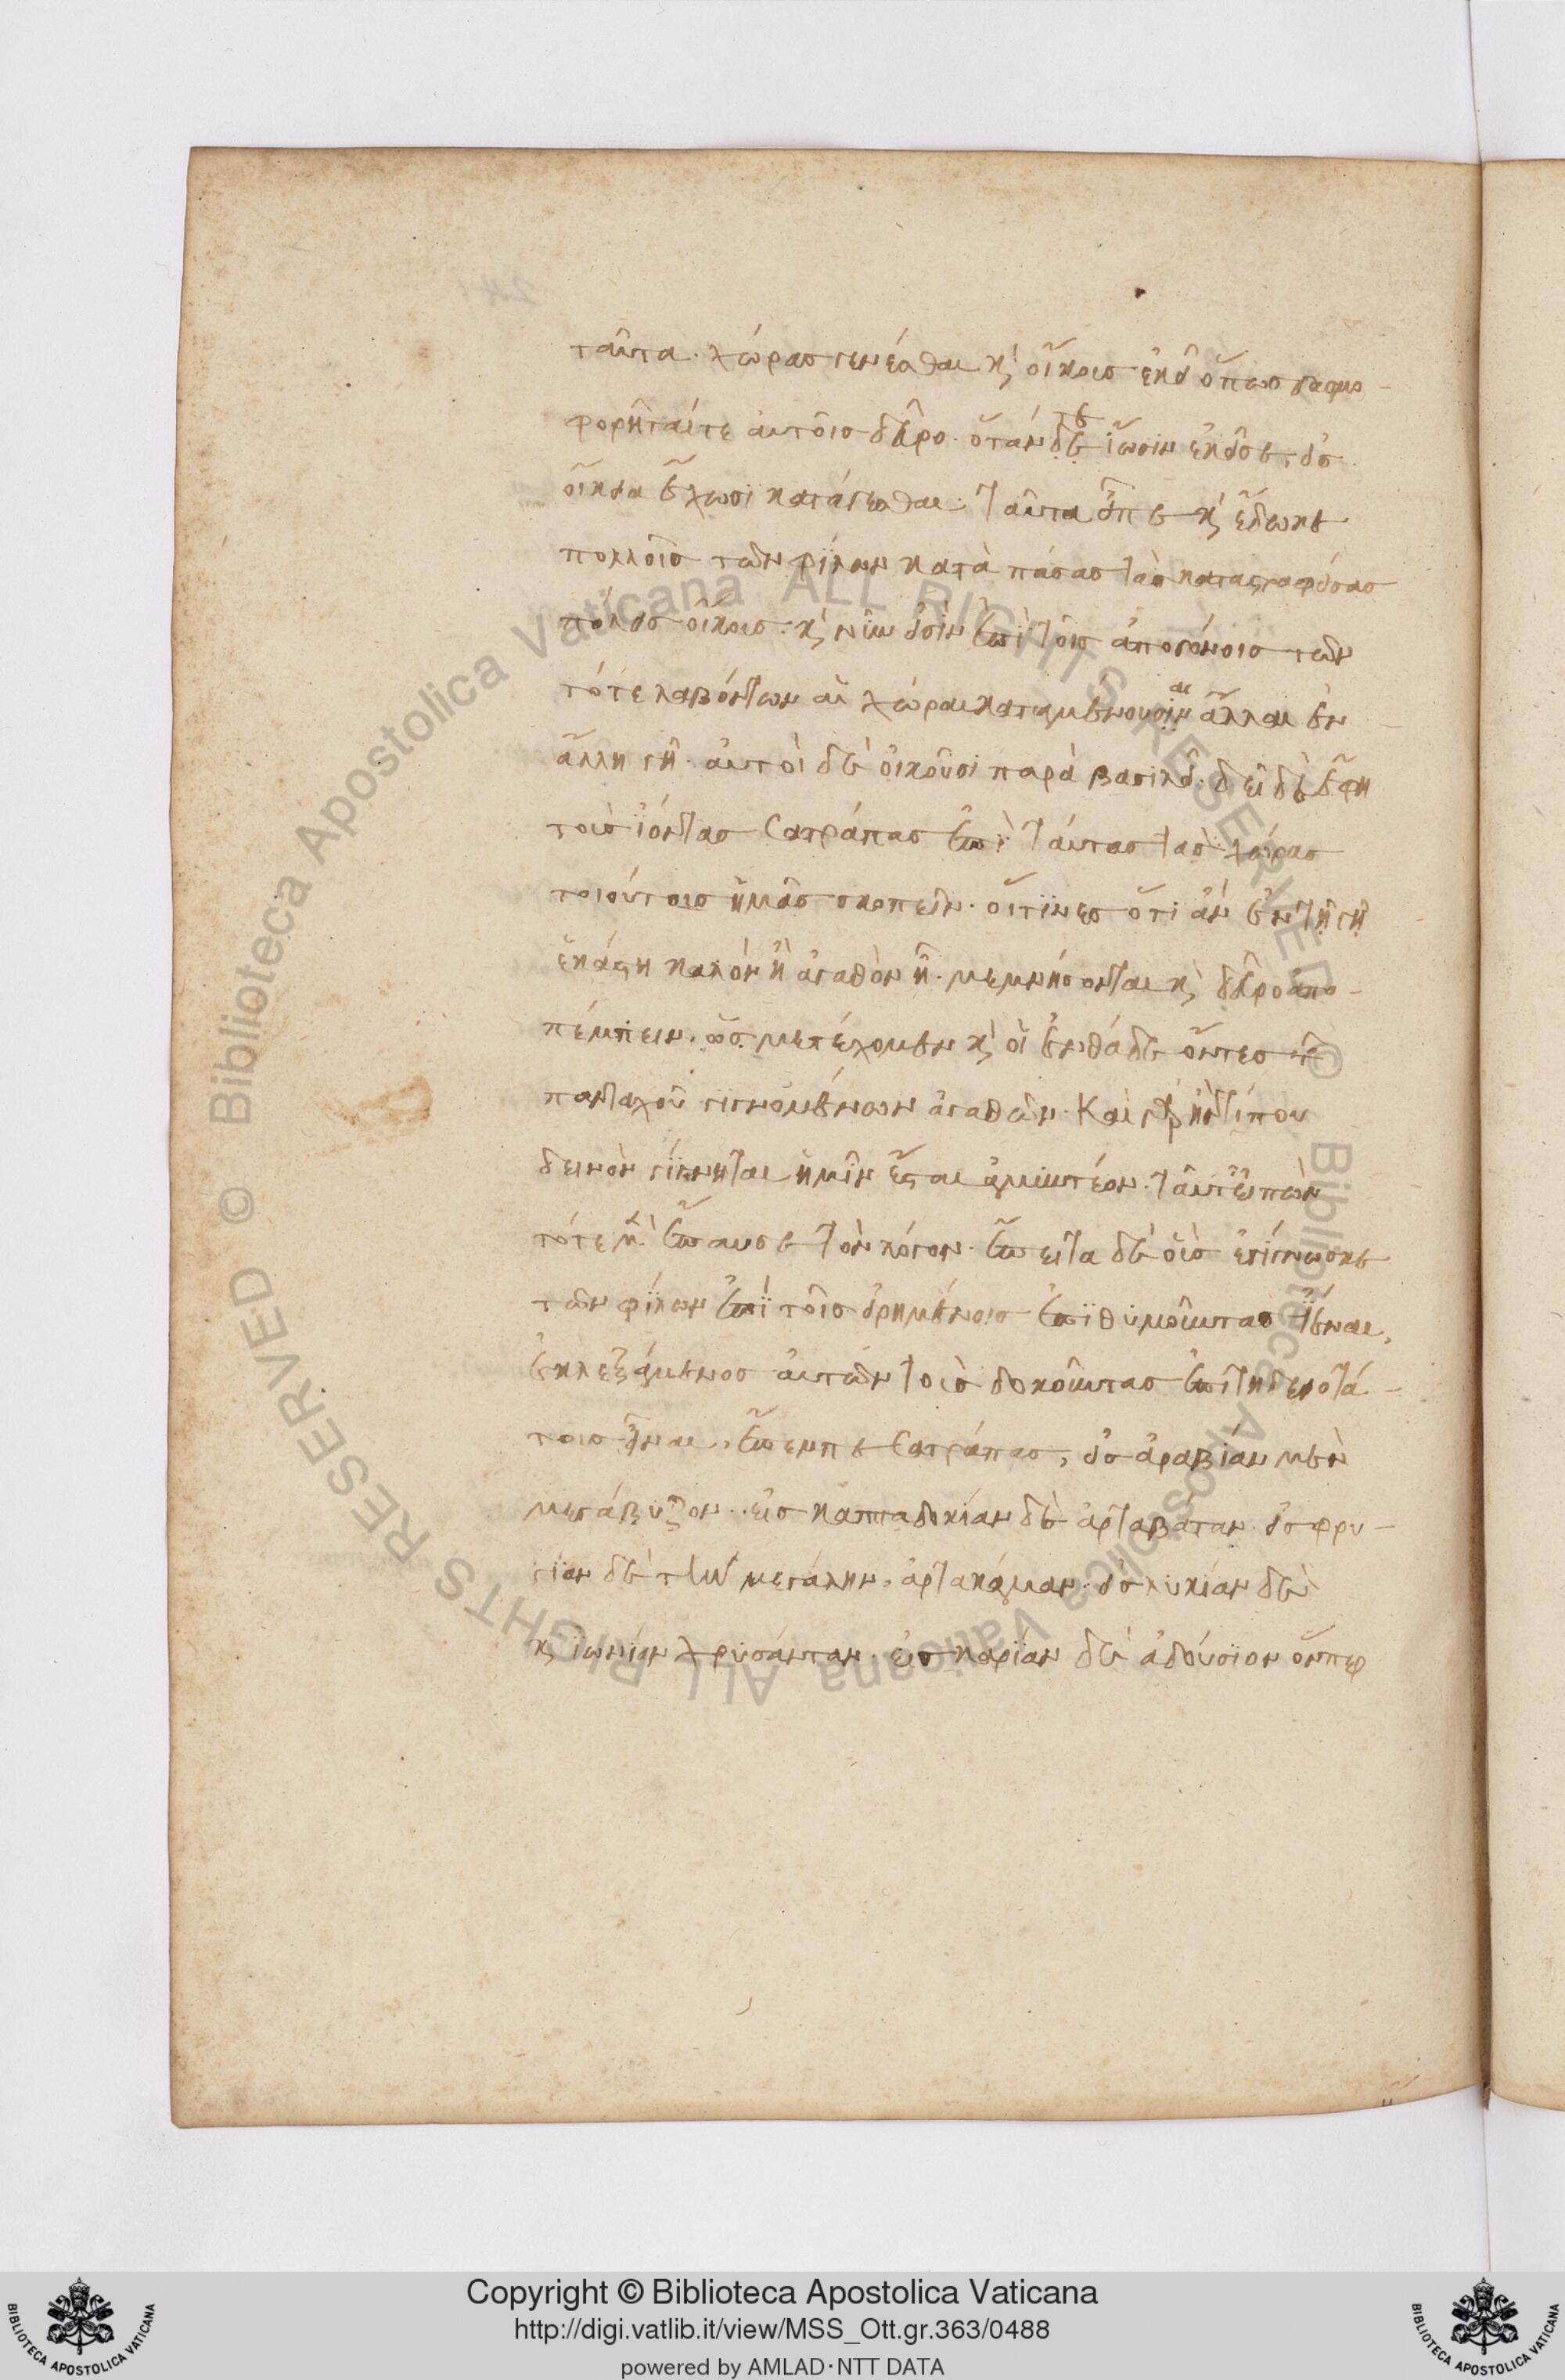 ταῦτα. χώρας γενέσθαι καὶ οἴκους ἐκεῖ ὅπως δασμο-
φορῆταίτε αὐτοῖς δεῦρο. ὅτάν τε ἴωσιν ἐκεῖσε, εἰς
οἰκεῖα ἔχωσι κατάγεσθαι. ταῦτα εἶπε καὶ ἔδωκε
πολλοῖς τῶν φίλων κατὰ πάσας τὰς καταστραφείσας
πόλεις οἴκους. καὶ νῦν εἰσὶν ἐπὶ τοῖς ἀπογόνοις τῶν
τότε λαβόντων αἱ χώραι καταμένουσιν αι ἄλλαι ἐν
ἄλλη γῆ. αὐτοὶ δὲ οἰκοῦσι παρὰ βασιλεῖ. δεῖ δὲ ἔφη
τοὺς ἰόντας σατράπας ἐπὶ ταύτας τὰς χώρας
τοιούτους ἡμᾶς σκοπεῖν. οἵτινες ὅτι ἂν ἐν τῇ γῇ
ἑκάστη καλὸν ἢ ἀγαθὸν ἦ. μεμνήσονται καὶ δεῦρο ἀπο-
πέμπειν. ὡς μετέχομεν καὶ οἱ ἐνθάδε ὄντες τῶν
πανταχοῦ γιγνομένων ἀγαθῶν. Καὶ γὰρ ἤν τί που
δεινὸν γίγνηται ἡμῖν ἔσται ἀμυντέον. ταῦτ' εἰπὼν
τότε μὲν ἔπαυσε τὸν λόγον. ἔπειτα δὲ οὓς ἐγίγνωσκε
τῶν φίλων ἐπὶ τοῖς εἰρημένοις ἐπιθυμοῦντας ἰέναι,
ἐκλεξάμενος αὐτῶν τοὺς δοκοῦντας ἐπιτηδειοτά-
τους εἶναι, ἔπεμπε σατράπας, εἰς ἀραβίαν μὲν
μεγάβυζον. εἰς καππαδοκίαν δὲ ἀρταβάταν. εἰς φρυ-
γίαν δὲ τὴν μεγάλην, ἀρτακάμαν. εἰς λυκίαν δὲ
καὶ ἰωνίαν χρυσάνταν. εἰς καρίαν δὲ ἀδούσιον ὅνπερ
Copyright © Biblioteca Apostolica Vaticana
http://digi.vatlib.it/view/MSS_Ott.gr.363/0488
powered by AMLAD·NTT DATA